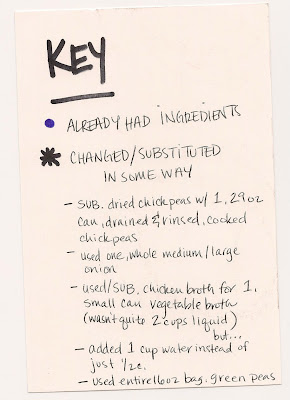 KEY
ALREADY HAD INGREDIENTS
CHANGED/SUBSTITUTED
IN SOME WAY
- SUB. dried chickpeas w/ 1, 29oz
can, drained & rinsed, cooked
chickpeas
- used one, whole medium/large
onion
- used/SUB. chicken broth for 1,
small can vegetable broth
(wasn't quite 2 cups liquid)
but...
- added 1 cup water instead of
just 1/2c.
- used entire 16oz bag. green peas